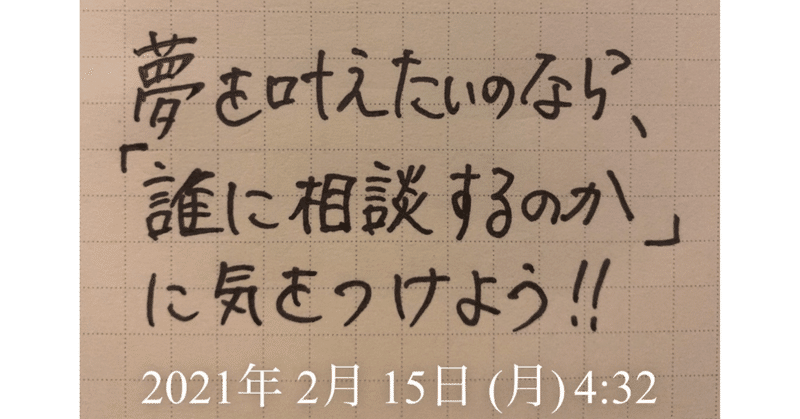 夢を叶えたいのなら、
「誰に相談するのか」
に気をつけよう!!
2021年 2月 15日 (月) 4:32